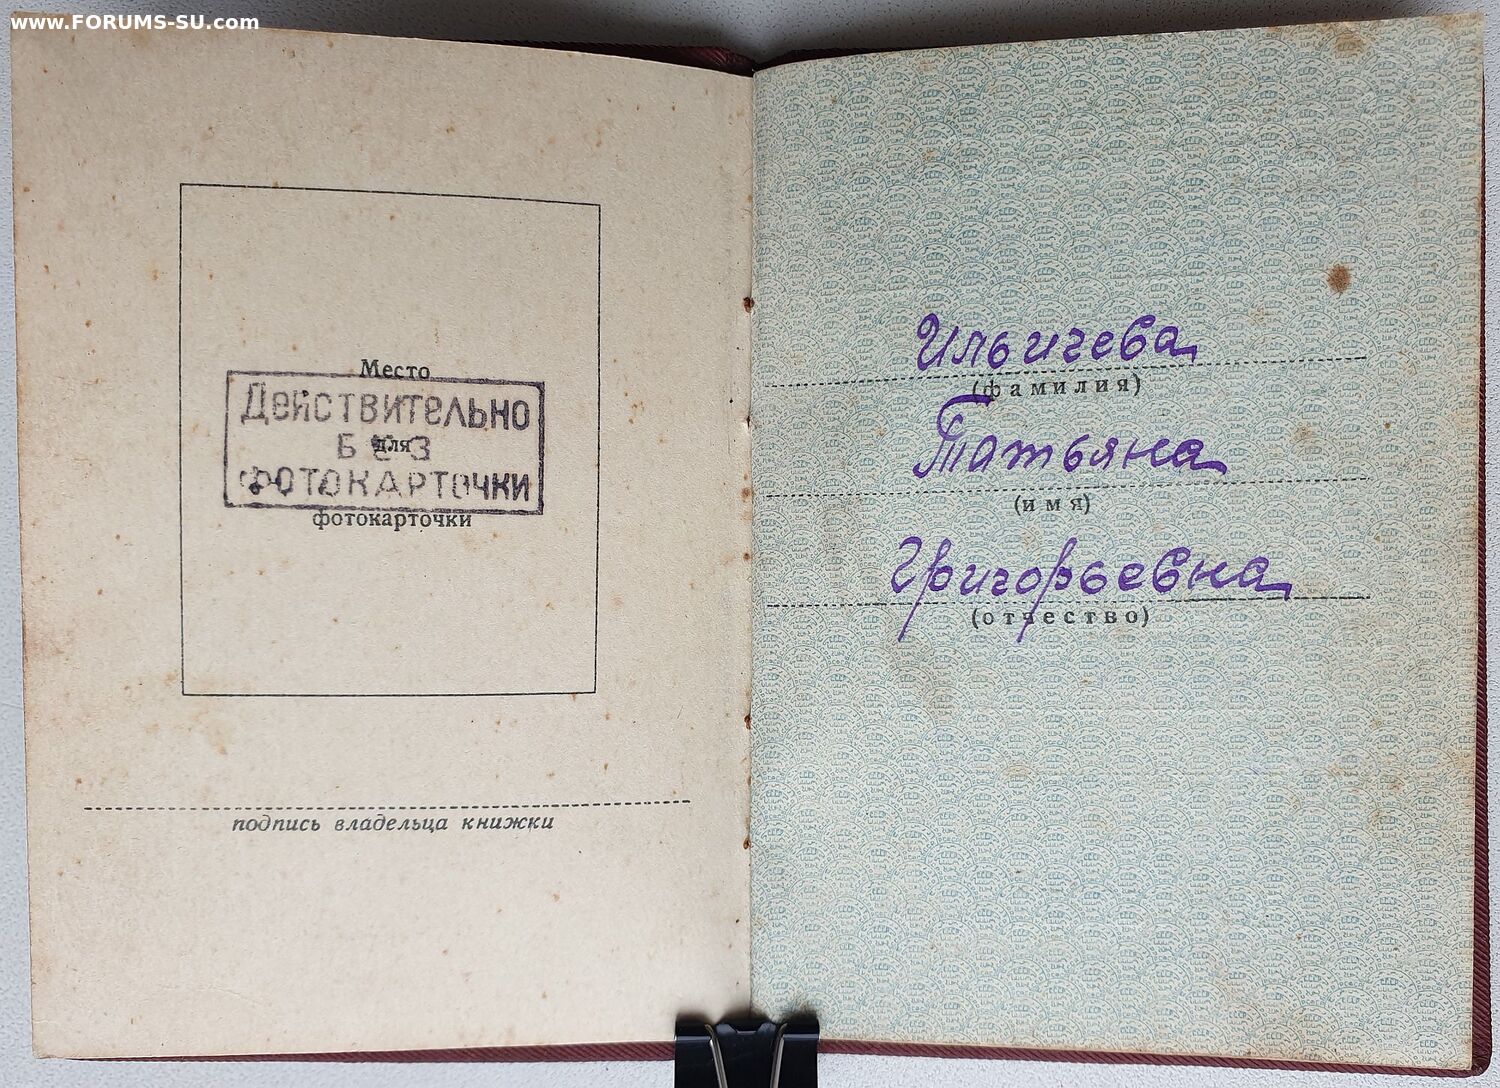 www.FORUMS-SU.com
Место
Действительно
без
для
фотокарточки
фотокарточки
подпись владельца книжки
Ильичева
(фамилия)
Татьяна
(имя)
Григорьевна
(отчество)